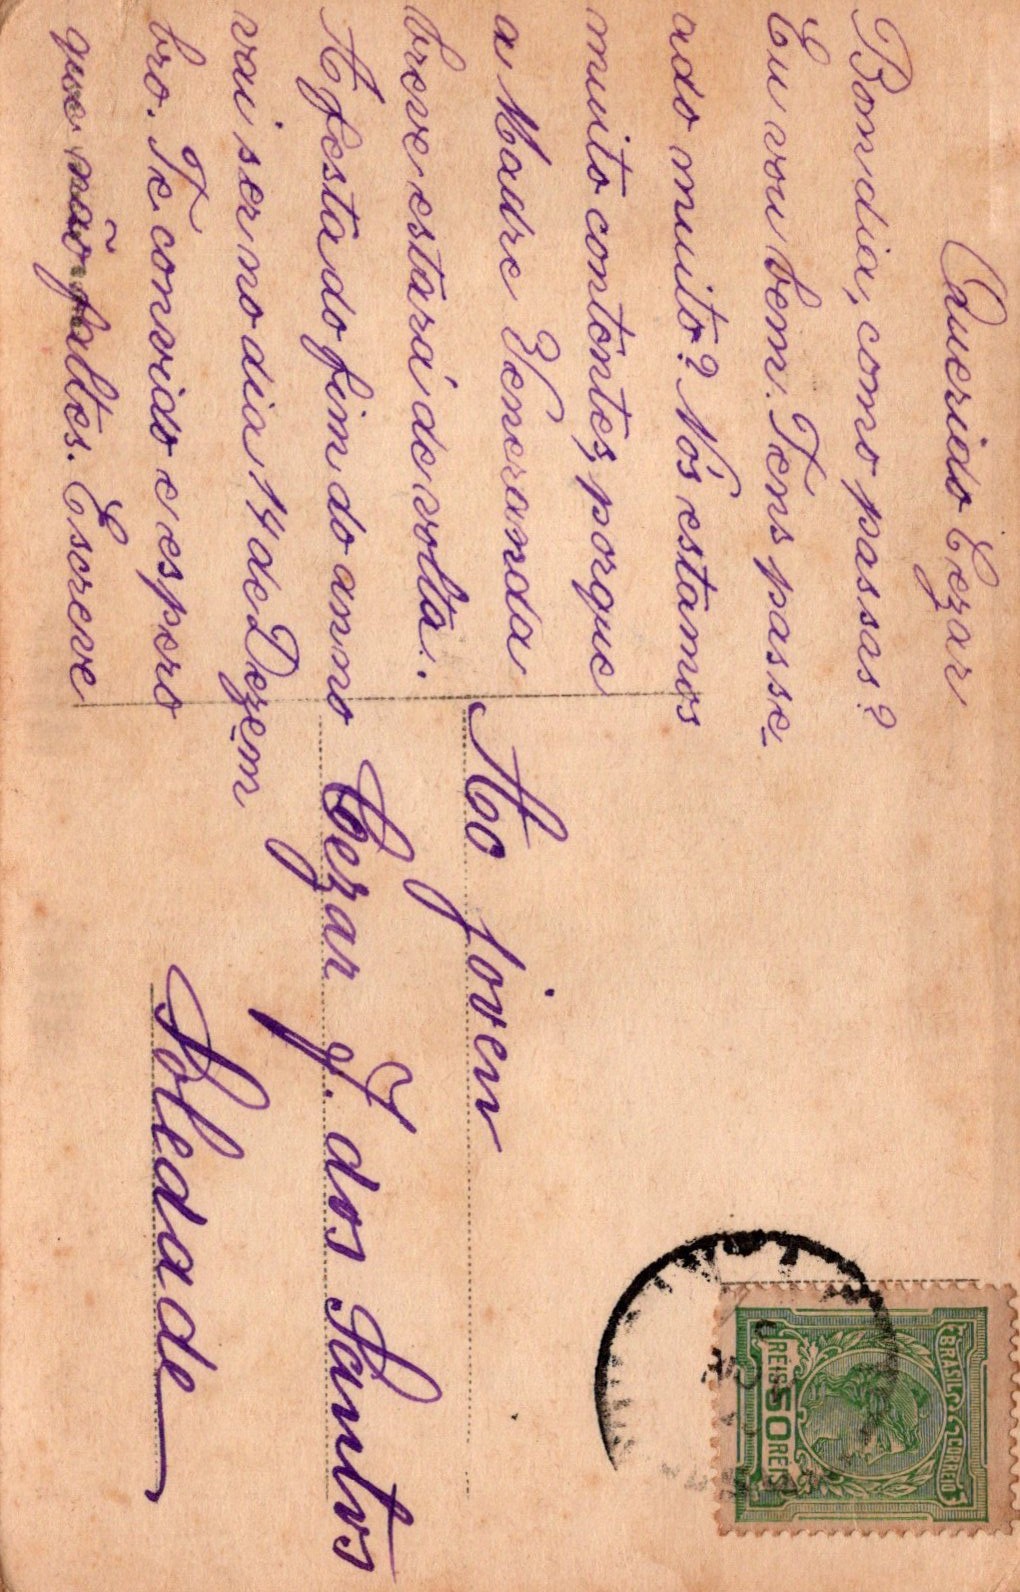 Querido Cezar
Bom dia, como passas?
Eu vou bem. Tens passe_
ado muito? Nós estamos
muito contentes, porque
a Madre Veneranda
breve estará de volta.
A festa do fim do anno
vai ser no dia 14 de Dezem
bro. Te convido e espero
que não faltes. Escreve
Ao joven
Cezar J. dos Santos
Soledade
BRASIL CORREIO
REIS 50 REIS